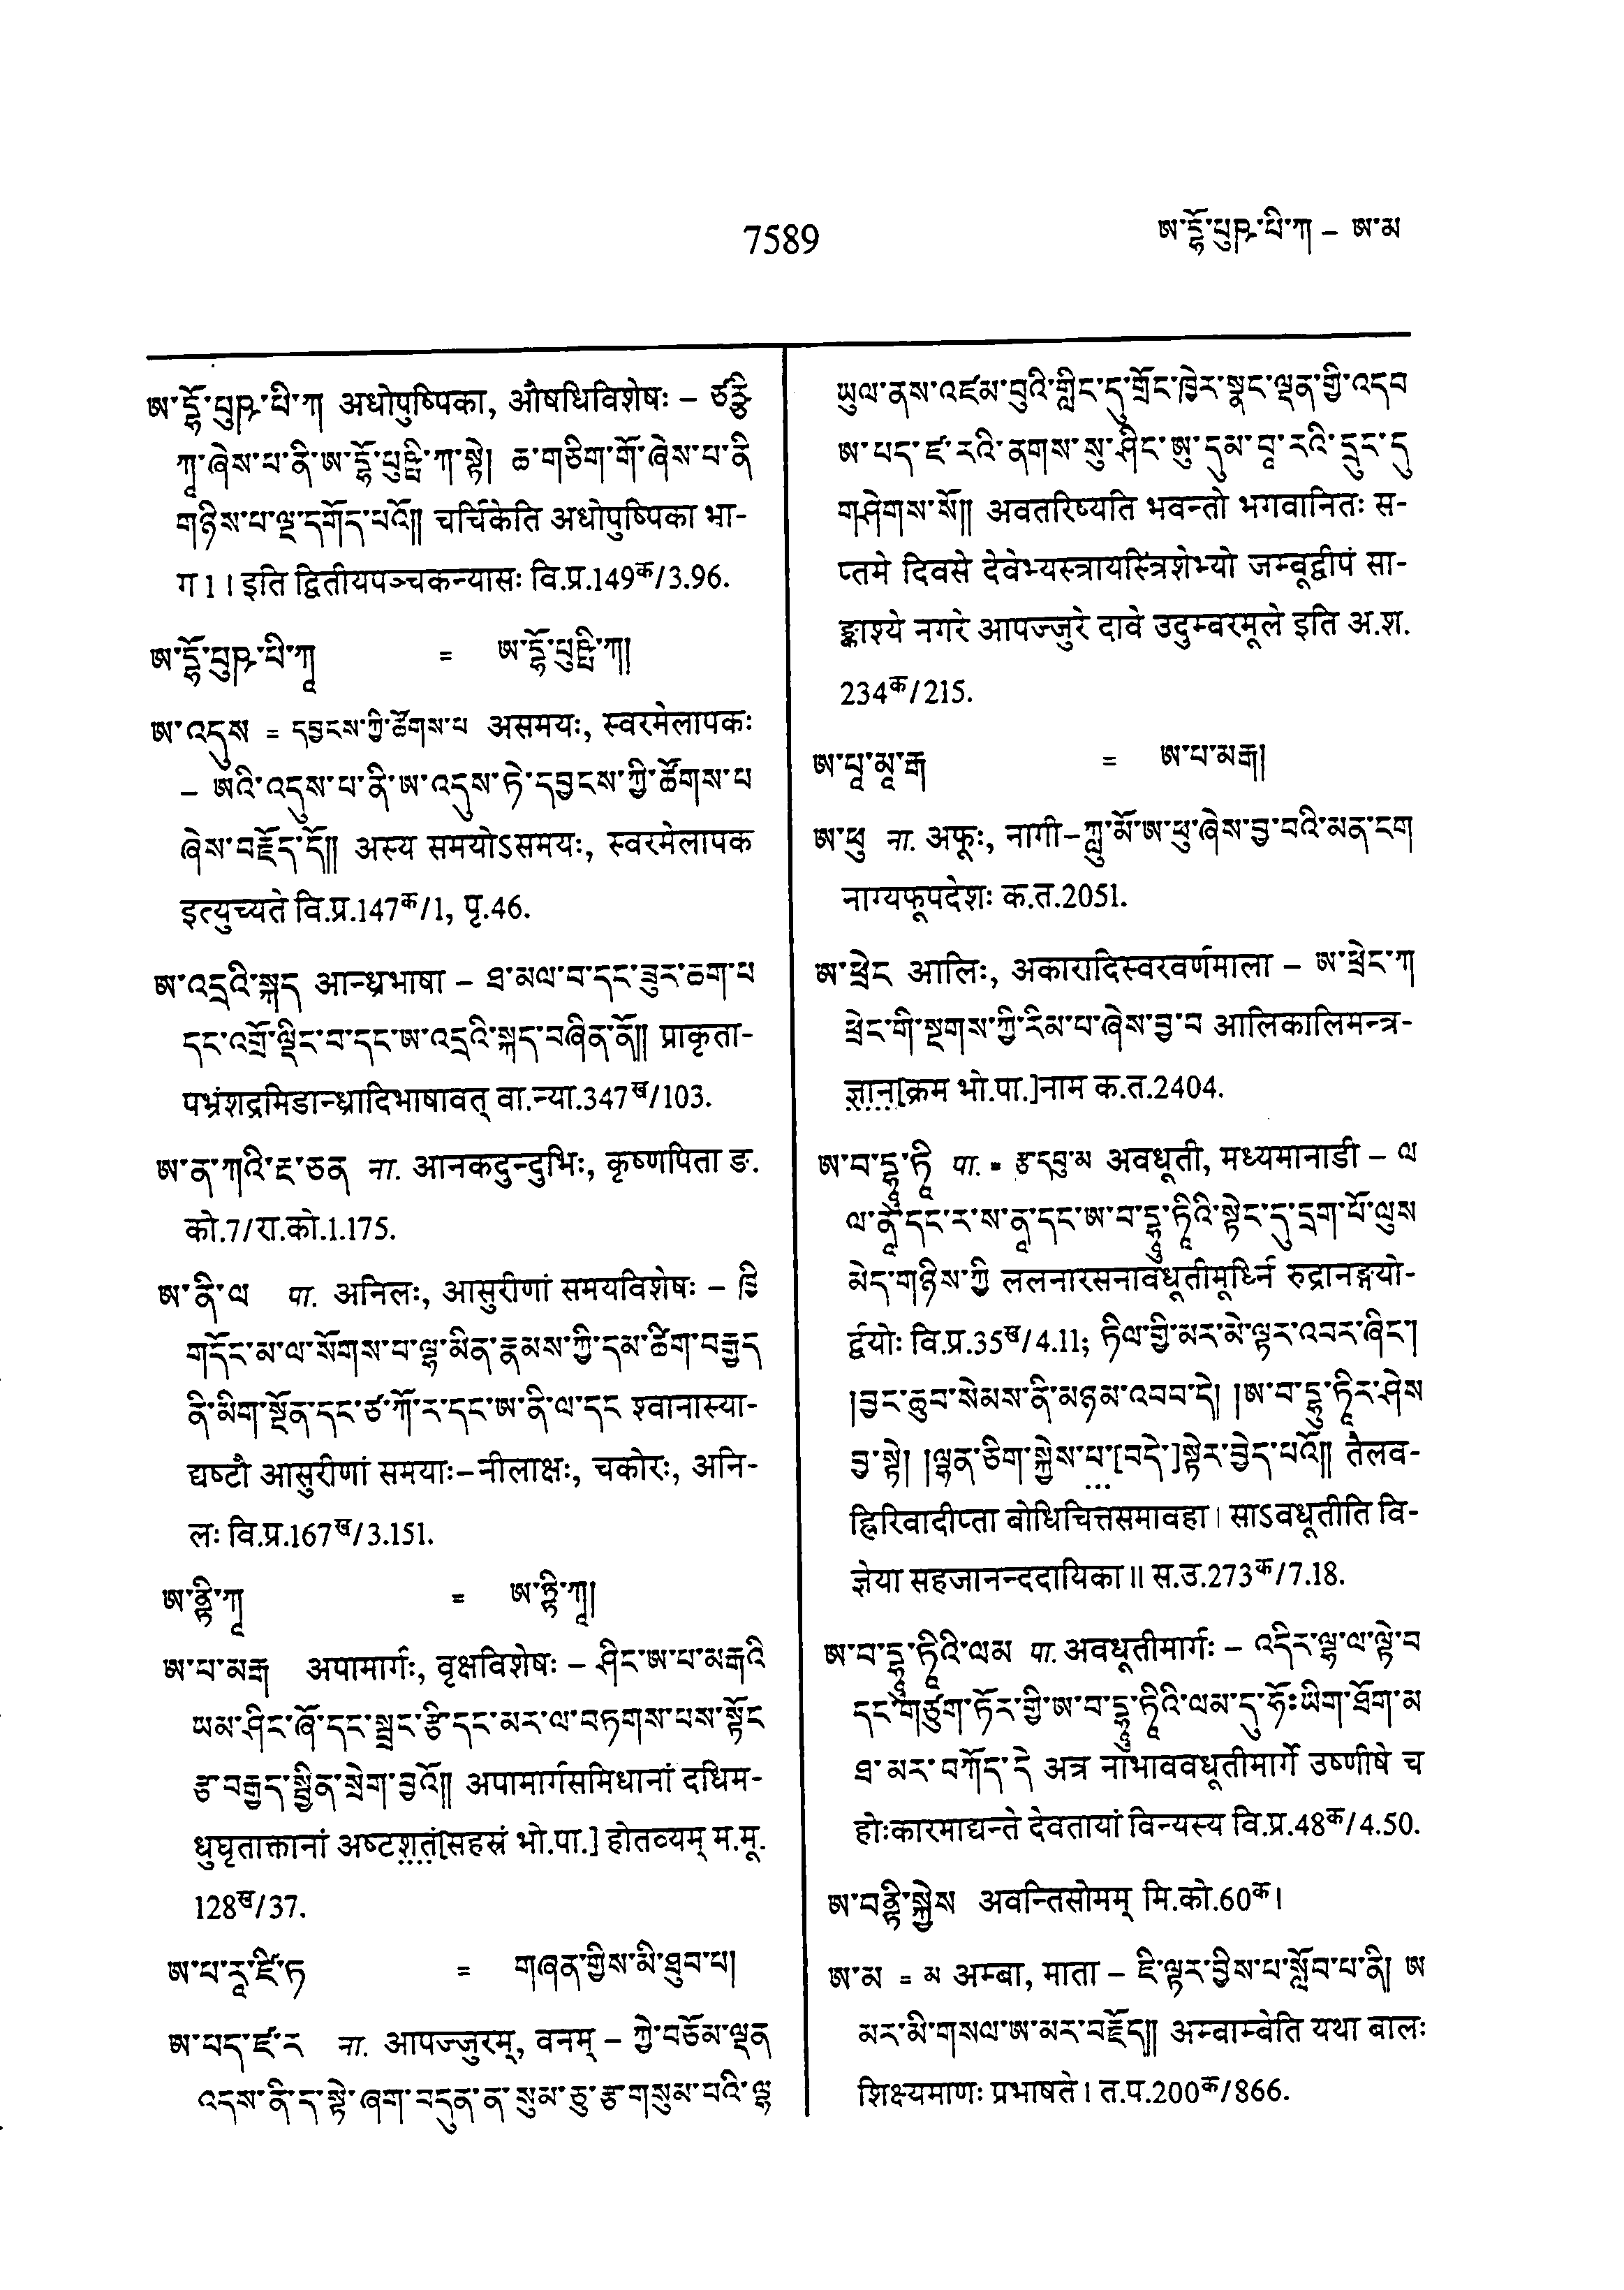 7589
ཨ་དྷོ་པུཥ་པི་ཀ – ཨ་མ
ཨ་དྷོ་པུཥ་པི་ཀ अधोपुष्पिका, औषधिविशेषः – ཙརྩི
ཀཱ་ཞེས་པ་ནི་ཨ་དྷོ་པུཥྤི་ཀ་སྟེ། ཆ་གཅིག་གོ་ཞེས་པ་ནི
གཉིས་པ་ལྔ་དགོད་པའོ།། चर्चिकेति अधोपुष्पिका भा-
ग 1 । इति द्वितीयपञ्चकन्यासः वि.प्र.149क/3.96.
ཨ་དྷོ་པུཥ་པི་ཀཱ = ཨ་དྷོ་པུཥྤི་ཀ།
ཨ་འདུས = དབྱངས་ཀྱི་ཚོགས་པ असमयः, स्वरमेलापकः
– ཨའི་འདུས་པ་ནི་ཨ་འདུས་ཏེ་དབྱངས་ཀྱི་ཚོགས་པ
ཞེས་བརྗོད་དོ།། अस्य समयोऽसमयः, स्वरमेलापक
इत्युच्यते वि.प्र.147क/1, पृ.46.
ཨ་འདྲའི་སྐད आन्ध्रभाषा – ཐ་མལ་བ་དང་ཟུར་ཆག་པ
དང་འགྲོ་ལྡིང་བ་དང་ཨ་འདྲའི་སྐད་བཞིན་ནོ།། प्राकृता-
पभ्रंशद्रमिडान्ध्रादिभाषावत् वा.न्या.347ख/103.
ཨ་ན་ཀའི་རྔ་ཅན ना. आनकदुन्दुभिः, कृष्णपिता ङ.
को.7/रा.को.1.175.
ཨ་ནི་ལ पा. अनिलः, आसुरीणां समयविशेषः – ཁྱི
གདོང་མ་ལ་སོགས་པ་ལྷ་མིན་རྣམས་ཀྱི་དམ་ཚིག་བརྒྱད
ནི་མིག་སྔོན་དང་ཙ་ཀོ་ར་དང་ཨ་ནི་ལ་དང श्वानास्या-
द्यष्टौ आसुरीणां समयाः–नीलाक्षः, चकोरः, अनि-
लः वि.प्र.167ख/3.151.
ཨ་ནྟི་ཀཱ = ཨ་ཏྟི་ཀཱ།
ཨ་པ་མརྒ अपामार्गः, वृक्षविशेषः – ཤིང་ཨ་པ་མརྒའི
ཡམ་ཤིང་ཞོ་དང་སྦྲང་རྩི་དང་མར་ལ་བཏགས་པས་སྟོང
རྩ་བརྒྱད་སྦྱིན་སྲེག་བྱའོ།། अपामार्गसमिधानां दधिम-
धुघृताक्तानां अष्टशतं[सहस्रं भो.पा.] होतव्यम् म.मू.
128ख/37.
ཨ་པ་རཱ་ཛི་ཏ = གཞན་གྱིས་མི་ཐུབ་པ།
ཨ་པད་ཛ་ར ना. आपज्जुरम्, वनम् – ཀྱེ་བཅོམ་ལྡན
འདས་ནི་ད་སྟེ་ཞག་བདུན་ན་སུམ་ཅུ་རྩ་གསུམ་པའི་ལྷ
ཡུལ་ནས་འཛམ་བུའི་གླིང་དུ་གྲོང་ཁྱེར་སྣང་ལྡན་གྱི་འདབ
ཨ་པད་ཛ་རའི་ནགས་སུ་ཤིང་ཨུ་དུམ་བཱ་རའི་དྲུང་དུ
གཤེགས་སོ།། अवतरिष्यति भवन्तो भगवानितः स-
प्तमे दिवसे देवेभ्यस्त्रायस्त्रिंशेभ्यो जम्बूद्वीपं सा-
ङ्काश्ये नगरे आपज्जुरे दावे उदुम्बरमूले इति अ.श.
234क/215.
ཨ་པཱ་མཱ་རྒ = ཨ་པ་མརྒ།
ཨ་ཕུ ना. अफूः, नागी–ཀླུ་མོ་ཨ་ཕུ་ཞེས་བྱ་བའི་མན་ངག
नाग्यफूपदेशः क.त.2051.
ཨ་ཕྲེང आलिः, अकारादिस्वरवर्णमाला – ཨ་ཕྲེང་ཀ
ཕྲེང་གི་སྔགས་ཀྱི་རིམ་པ་ཞེས་བྱ་བ आलिकालिमन्त्र-
ज्ञान[क्रम भो.पा.]नाम क.त.2404.
ཨ་བ་དྷཱུ་ཏཱི पा. = རྩ་དབུ་མ अवधूती, मध्यमानाडी – ལ
ལ་ནཱ་དང་ར་ས་ནཱ་དང་ཨ་བ་དྷཱུ་ཏཱིའི་སྟེང་དུ་དྲག་པོ་ལུས
མེད་གཉིས་ཀྱི ललनारसनावधूतीमूर्ध्नि रुद्रानङ्गयो-
र्द्वयोः वि.प्र.35ख/4.11; ཏིལ་གྱི་མར་མེ་ལྟར་འབར་ཞིང་།
།བྱང་ཆུབ་སེམས་ནི་མཉམ་འབབ་དེ། །ཨ་བ་དྷུ་ཏཱིར་ཤེས
བྱ་སྟེ། །ལྷན་ཅིག་སྐྱེས་པ་[བདེ་]སྟེར་བྱེད་པའོ།། तैलव-
ह्निरिवादीप्ता बोधिचित्तसमावहा। साऽवधूतीति वि-
ज्ञेया सहजानन्ददायिका॥ स.उ.273क/7.18.
ཨ་བ་དྷཱུ་ཏཱིའི་ལམ पा. अवधूतीमार्गः – འདིར་ལྷ་ལ་ལྟེ་བ
དང་གཙུག་ཏོར་གྱི་ཨ་བ་དྷཱུ་ཏཱིའི་ལམ་དུ་ཧོཿཡིག་ཐོག་མ
ཐ་མར་བཀོད་དེ अत्र नाभाववधूतीमार्गे उष्णीषे च
होःकारमाद्यन्ते देवतायां विन्यस्य वि.प्र.48क/4.50.
ཨ་བནྟི་སྐྱེས अवन्तिसोमम् मि.को.60क।
ཨ་མ = མ अम्बा, माता – ཇི་ལྟར་བྱིས་པ་སློབ་པ་ནི། ཨ
མར་མི་གསལ་ཨ་མར་བརྗོད།། अम्बाम्बेति यथा बालः
शिक्ष्यमाणः प्रभाषते। त.प.200क/866.